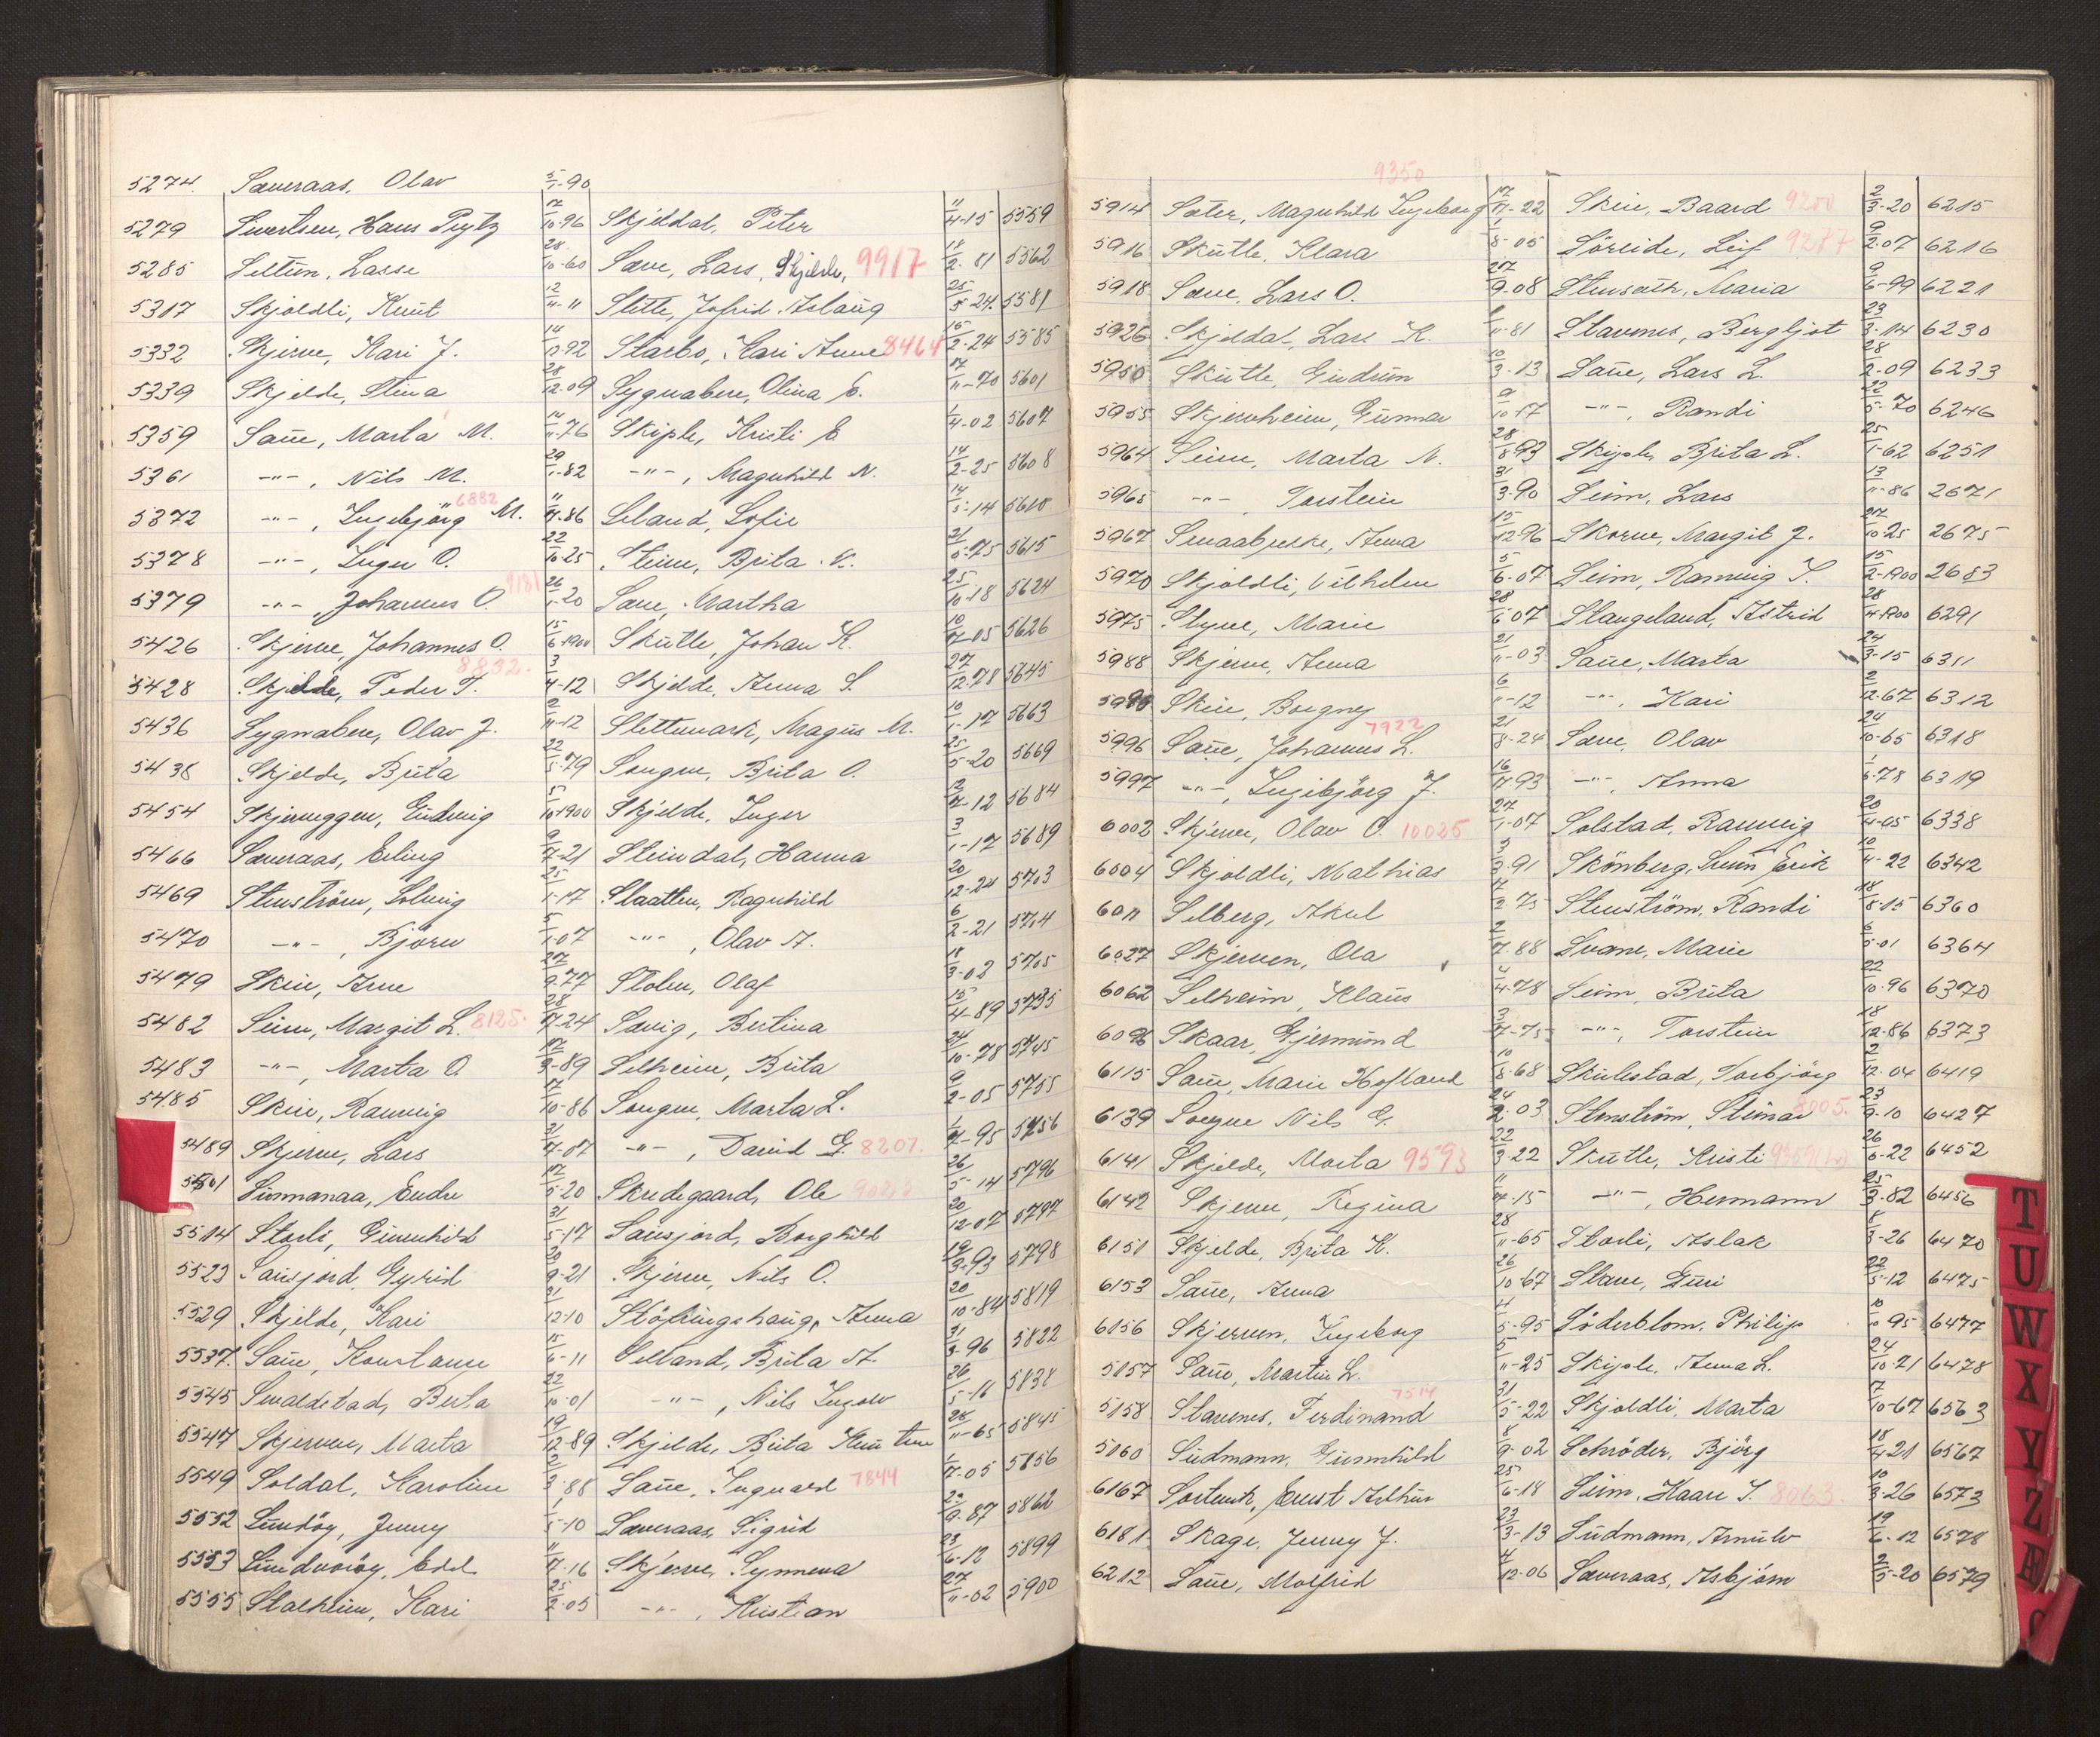 5274. Sæveraas, Olav 5/1-90
5279 Sivertsen, Hans Prytz 17/10-96 Skjeldal, Peter 11/4-15 5559
5285 Seltun, Lasse 28/10-60 Sæve, Lars, Skjelde, 9917 18/2-81 5562
5317 Skjoldli, Knut 12/11-11 Slette, Jofrid Aslaug 25/5-24 5581
5332 Skjerve, Kari J. 14/12-92 Starbo, Kari Anne 8464 16/2-24 5585
5339 Skjelde, Stina 28/12-09 Sygnabere, Olina E. 17/11-70 5601
5359 Saue, Marta M. 14/11-76 Skiple, Kristi E. 1/4-02 5607
5361 -"-, Nils M. 29/1-82 -"-, Magnhild N. 14/2-25 5608
5372 -"-, Ingebjörg M. 6882 11/4-86 Leland, Sofie 14/5-14 5610
5378 -"-, Inger O. 22/10-25 Steine, Brita K. 21/5-75 5615
5379 -"- Johannes O. 9181 26/1-20 Saue, Martha 25/10-18 5624
5426 Skjerve, Johannes O. 15/6-1900 Skutle, Johan K. 10/7-05 5626
5428 Skjelde, Peder T. 8832. 3/4-12 Skjelde, Anna S. 27/12-78 5645
5436 Sygnabere, Olav J. 2/11-12 Slettemark, Magnus M. 10/1-17 5663
5438 Skjelde, Brita 22/5-79 Songve, Brita O. 25/5-20 5669
5454 Skjerveggen, Gudveig 5/10-1900 Skjelde, Inger 12/7-12 5684
5466 Sæveraas, Erling 9/7-21 Steindal, Hanna 3/1-17 5689
5469 Stenström, Solveig 25/1-17 Slaatten, Ragnhild 20/12-24 5703
5470 -"-, Björn 5/1-07 -"-, Olav A. 6/2-21 5704
5479 Skeie, Arne 27/9-77 Stolen, Olaf 18/3-02 5705
5482 Seim, Margit L. 8125. 28/7-24 Sævig, Bertina 15/4-89 5735
5483 -"-, Marta O 17/3-89 Selheim, Brita 24/10-78 5745
5485 Skeie, Ranveig 17/10-86 Songve, Marta L. 9/2-05 5755
5489 Skjerve, Lars 21/7-07 -"-, David G. 8207. 1/7-95 5756
5501 Sunnanaa, Endre 17/5-20 Skredegaard, Ole 26/5-14 5796
5514 Storli, Gunnhild 31/5-17 Sausjord, Borghild 20/12-07 5797
5523 Sausjord, Gyrid 20/9-21 Skjerve, Nils O. 19/3-93 5798
5529 Skjelde, Kari 21/12-10 Stöfringshaug, Anna 20/10-84 5819
5537. Saue, Konstanse 15/6-11 Selland, Brita A. 31/3-96 5822
5545 Smaldstad, Berta 22/10-01 -"-, Nils Ingolv 26/5-16 5838
5547 Skjerven, Marta 19/12-89 Skjelde, Brita Knutine 28/11-65 5845
5549 Soldal, Karoline 2/3-88 Saue, Ingvard 7844 1/7-05 5856
5552 Sundöy, Jenny 1/5-10 Sæveraas, Sigrid 20/9-87 5862
5553 Sundvoröy, Edel 11/7-16 Skjerve, Synneva 23/6-12 5899
5555 Stalheim, Kari 25/2-05 -"-, Kristian 27/11-02 5900
9350
5914 Sæter, Magnhild Ingeborg 17/11-22 Skeie, Baard 9200 2/3-20 6215
5916 Skutle, Klara 1/8-05 Sörlide, Leif 9277 9/2-07 6216
5918 Sæve, Lars O. 27/9-08 Stensæth, Maria 9/6-99 6221
5926 Skjeldal, Lars K. 1/11-81 Stavenes, Bergljot 23/3-14 6230
5950 Skutle, Gudrun 10/3-13 Saue, Lars L. 28/2-09 6233
5955 Skjervheim, Gunnar 9/10-17 -"-, Randi 22/5-70 6246
5964 Seim, Marta N. 28/8-93 Skiple, Brita L. 25/1-62 6251
5965 -"- Torstein 31/3-90 Seim, Lars 13/11-86 2671
5967 Smaabrekke, Anna 15/12-96 Skorve, Margit J. 27/10-25 2675
5970 Skjoldli, Vilhelm 5/6-07 Seim, Ranveig S. 15/2-1900 2683
5975 Styve, Marie 28/6-07 Stangeland, Astrid 28/4-1900 6291
5988 Skjerve, Anna 21/11-03 Saue, Marta 24/3-15 6311
5990 Skeie, Borgny 6/11-12 -"- Kari 2/12-67 6312
5996 Saue, Johannes L. 7922 21/8-24 Sæve, Olav 24/10-65 6318
5997 -"-, Ingebjörg J. 16/7-93 -"-, Anna 1/6-78 6319
6002 Skjerve, Olav O. 10025 27/1-07 Solstad, Ranveig 20/4-05 6338
6004 Skjoldli, Mathias 3/3-91 Skönberg, Svein Erik 10/4-22 6342
6011 Selberg, Aksel 7/2-75 Stenström, Randi 18/8-15 6360
6027 Skjerven, Ola 2/7-88 Svane, Marie 6/5-01 6364
6062 Selheim, Klaus 4/4-78 Seim, Brita 22/10-96 6370
6096 Skaar, Gjermund 3/7-75 -"-, Torstein 18/12-86 6373
6115 Saue, Marie Hofland 10/8-68 Skulestad, Torbjörg 2/12-04 6419
6139 Songve Nils G. 24/2-03 Stenström, Steinar 8005. 23/9-10 6427
6141 Skjelde, Marta 9593 22/3-22 Skutle, Kristi 26/6-22 6452
6142 Skjerve, Regina 11/7-15 -"-, Hermann 25/3-82 6456
6151 Skjelde, Brita K. 28/11-65 Storli, Aslak 8/3-26 6470
6153 Saue, Anna 26/10-67 Stave, Guri 22/5-12 6475
6156 Skjerven, Ingeborg 4/5-95 Söderblom, Philip 10/10-95 6477
5157 Saue, Martin L. 5/11-25 Skiple, Anna L. 24/10-71 6478
5158 Stavenes, Ferdinand 7514 31/5-22 Skjoldli, Marta 17/10-67 6563
5160 Sudmann, Gunnhild 8/9-02 Schröder, Björg 18/4-21 6567
6167 Sortevik, Ernst Arthur 25/6-18 Seim, Kaare S. 8063 10/3-26 6573
6181 Skage, Jenny J. 23/3-13 Sudmann, Arnulv 19/6-12 6578
6212 Saue, Molfrid 4/12-06 Sæveraas, Asbjörn 2/5-20 6579
T
U
W
X
Y
Z
Æ